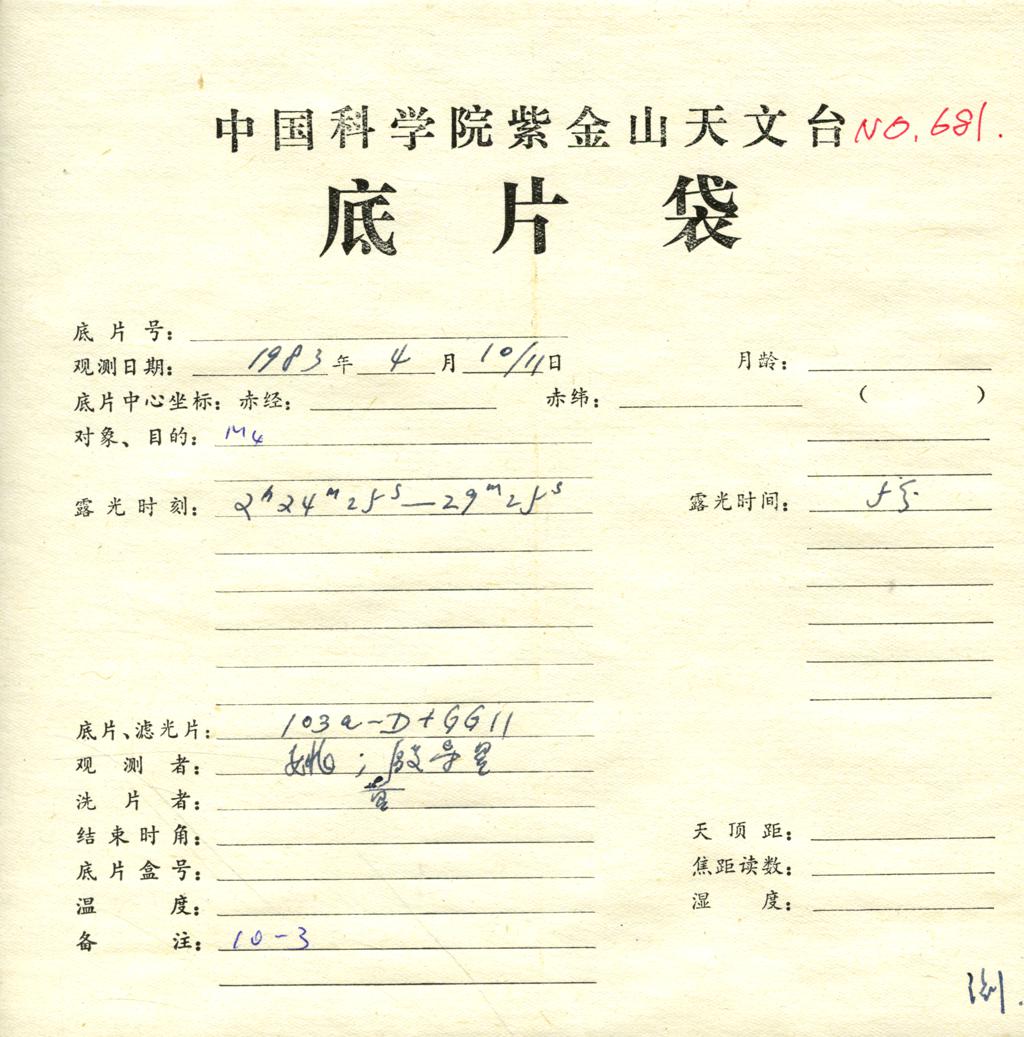 中国科学院紫金山天文台 NO. 681.
底片袋
底片号:
观测日期: 1983年 4月 10/11日 月龄:
底片中心坐标: 赤经: 赤纬: ( )
对象、目的: M4
露光时刻: 2h24m25s—29m25s 露光时间: 5分
底片、滤光片: 103a-D+GG11
观测者:
洗片者:
结束时角: 天顶距:
底片盒号: 焦距读数:
温度: 湿度:
备注: 10-3